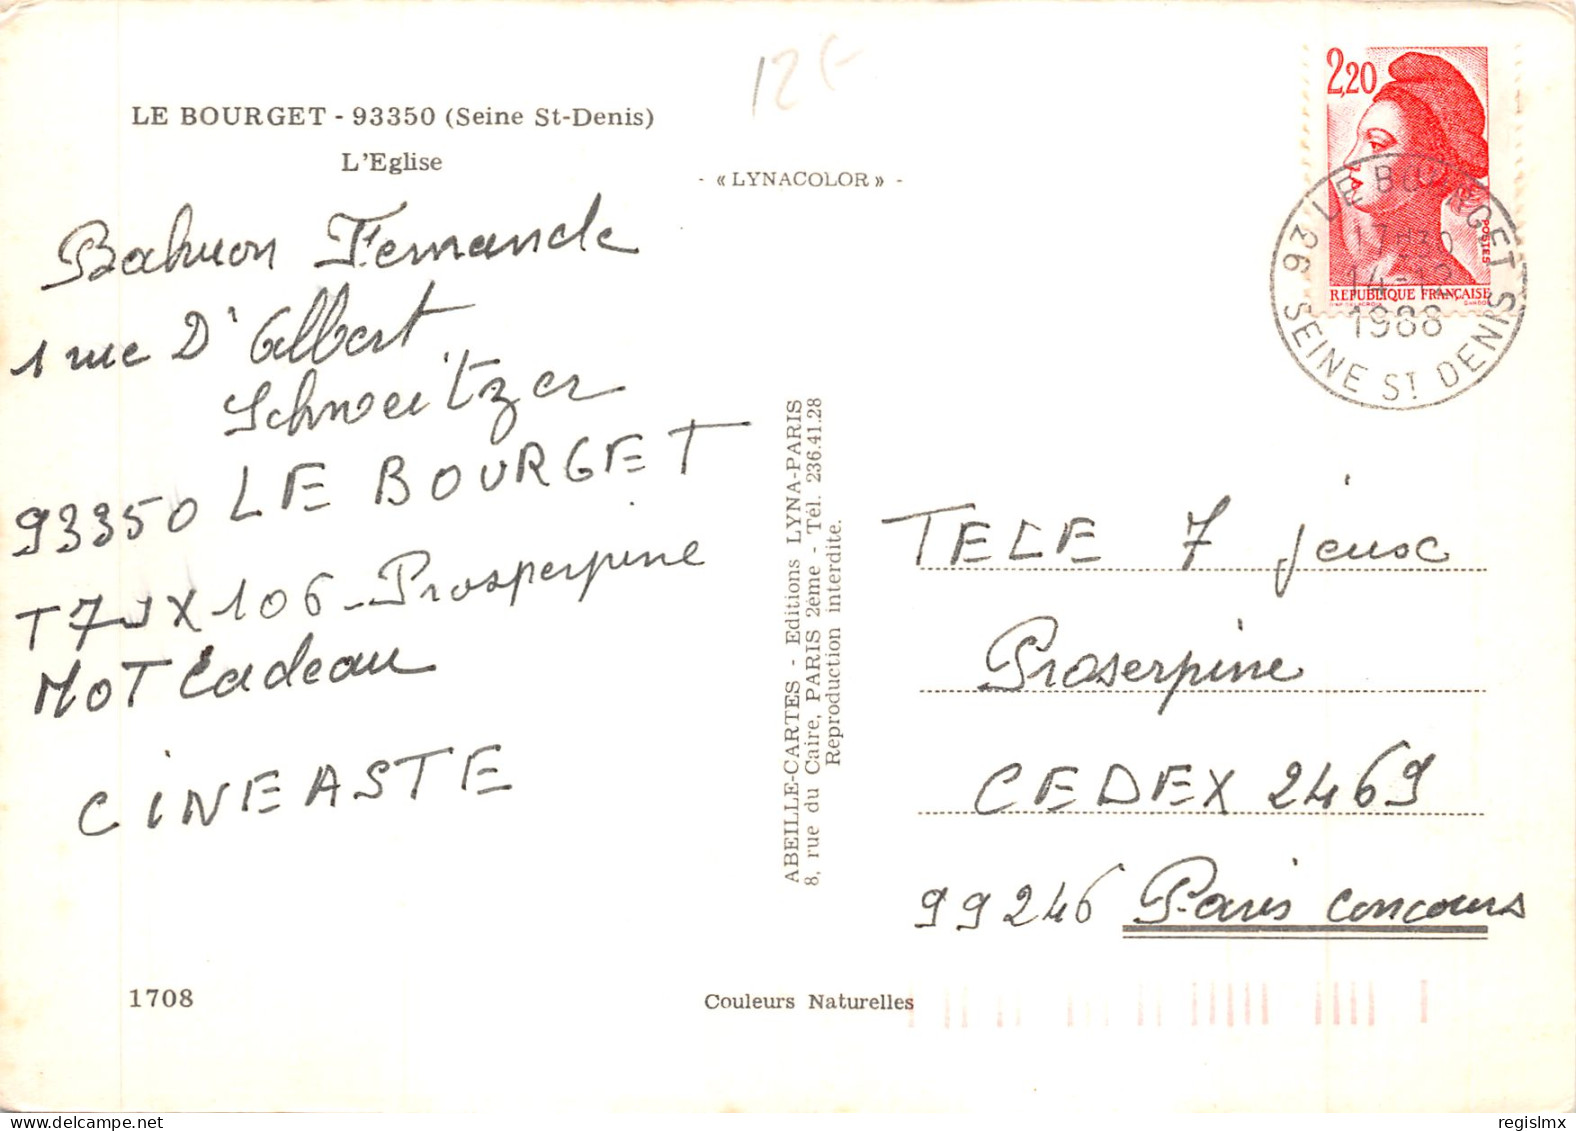 12€
LE BOURGET - 93350 (Seine St-Denis)
L'Eglise
- « LYNACOLOR » -
Fernande
1 rue D'Albert
Schweitzer
93350 LE BOURGET
T7JX 106 - Prosperpine
MOT Cadeau
CINEASTE
1708
ABEILLE-CARTES - Editions LYNA-PARIS
8, rue du Caire, PARIS 2ème - Tél. 236.41.28
Reproduction interdite.
Couleurs Naturelles
2,20
POSTES
REPUBLIQUE FRANÇAISE
LE BOURGET
17H30
14-12
1988
93 SEINE ST DENIS
TELE 7 jeux
Proserpine
CEDEX 2469
99246 Paris concours
regislmx